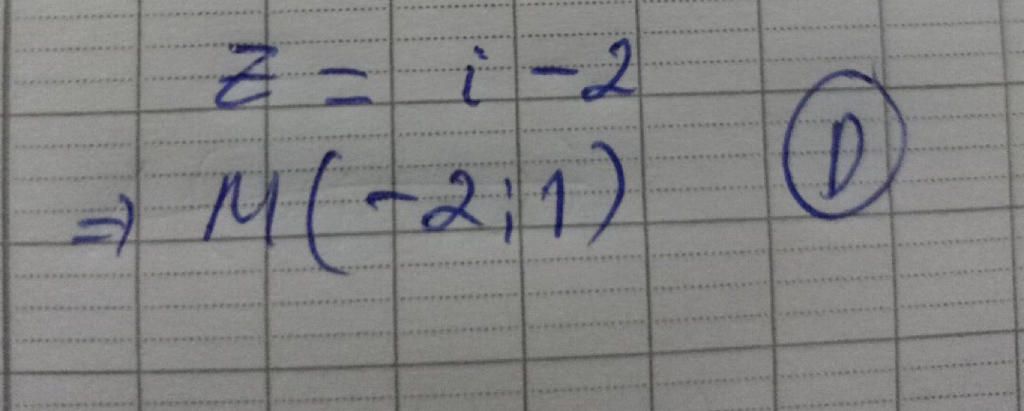 z = i - 2
⇒ M(-2; 1) D